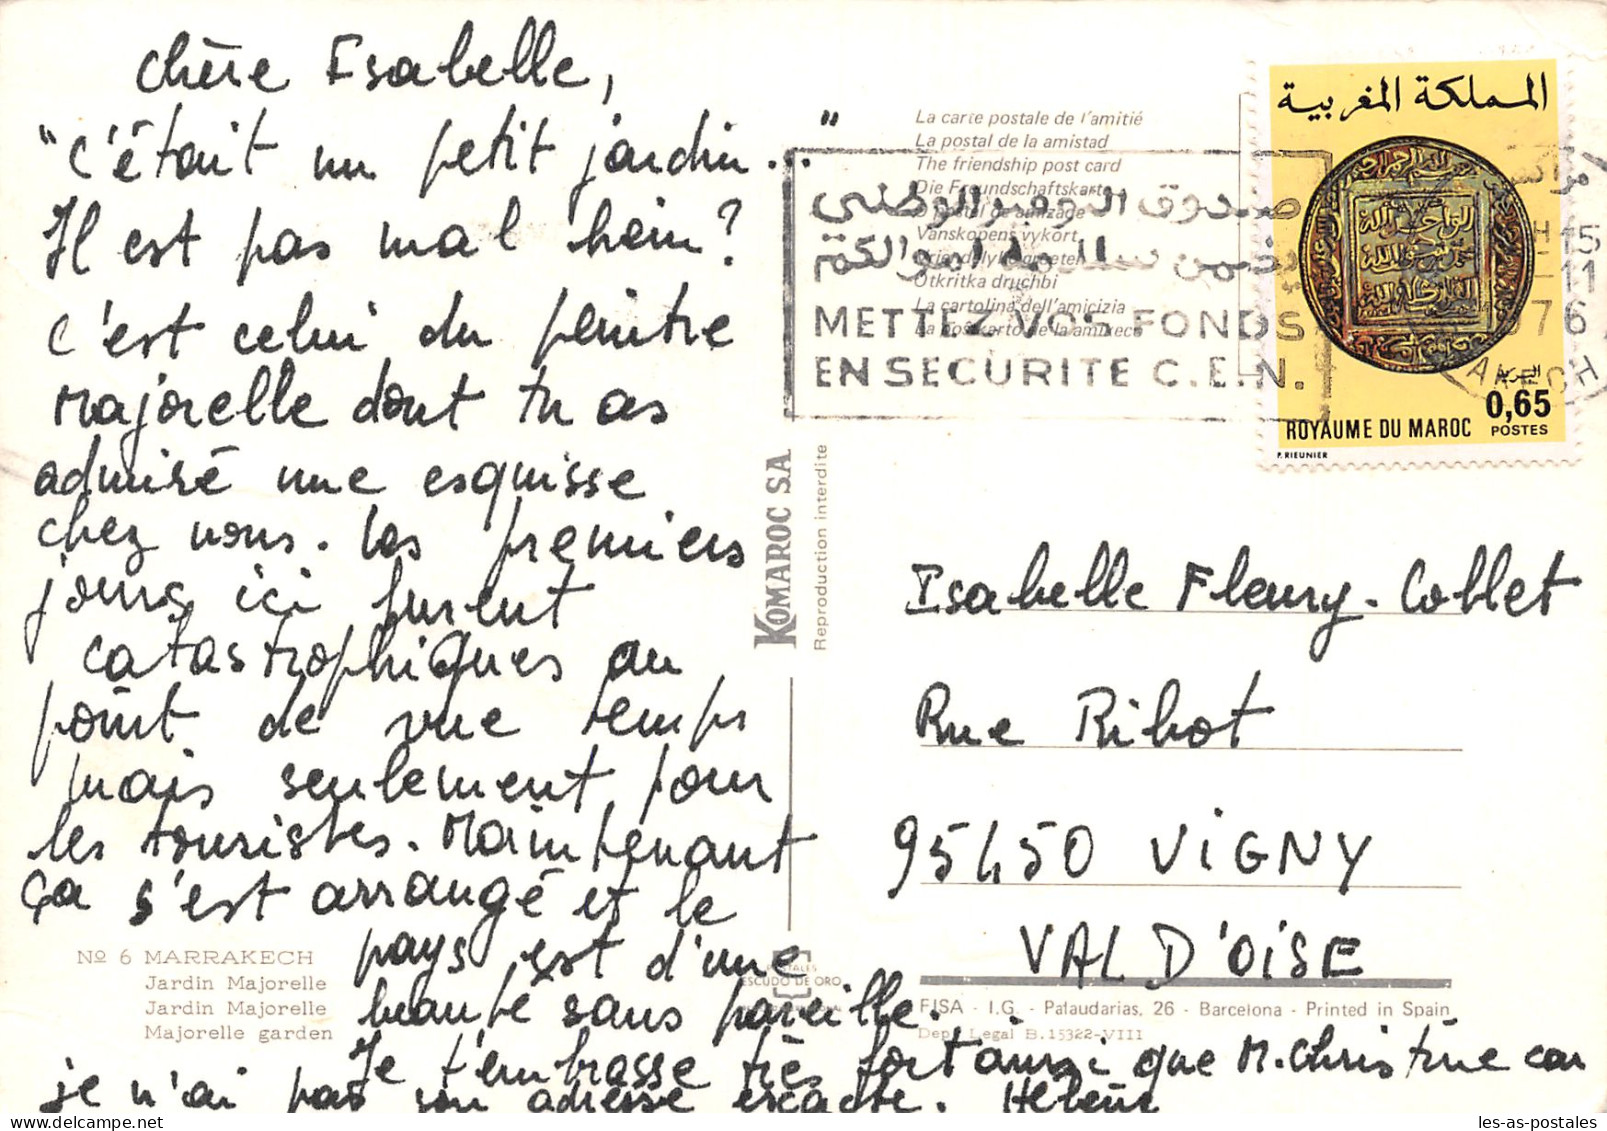 Chère Isabelle,
"C'était un petit jardin..."
Il est pas mal hein?
C'est celui du peintre
Majorelle dont tu as
admiré une esquisse
chez nous. Les premiers
jours ici furent
catastrophiques au
point de vue temps
mais seulement pour
les touristes. Maintenant
ça s'est arrangé et le
pays est d'une
beauté sans pareille.
Je t'embrasse très fort ainsi que M. Christine car
je n'ai pas son adresse exacte. Hélène
No 6 MARRAKECH
Jardin Majorelle
Jardin Majorelle
Majorelle garden
KOMAROC S.A.
Reproduction interdite
POSTALES
ESCUDO DE ORO
La carte postale de l'amitié
La postal de la amistad
The friendship post card
Die Freundschaftskarte
O postal de amizade
Vanskapens vykort
Vriendelijke groeten
Otkritka druchbi
La cartolina dell'amicizia
صندوق التوفير الوطني
يضمن سلامة أموالكم
METTEZ VOS FONDS
EN SECURITE C.E.N.
المملكة المغربية
0,65
ROYAUME DU MAROC POSTES
P. RIEUNIER
15
-11
1976
Isabelle Fleury-Collet
Rue Ribot
95450 VIGNY
VAL D'OISE
FISA - I.G. - Palaudarias, 26 - Barcelona - Printed in Spain
Dep. Legal B.15322-VIII
les-as-postales